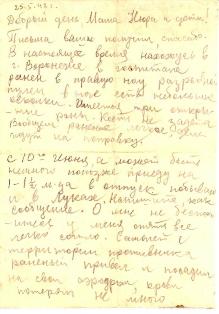 25.5.42 г.
Добрый день Маша Нюра и дети!
Письма ваши получил спасибо.
В настоящее время нахожусь в
г. Воронеже в госпитале
ранен в правую ногу разрывной
пулей в ноге есть небольшие
осколки. Имеется три откры-
тые раны. Кость не задета
Вообщем ранение легкое дела
идут на поправку.
С 10го июня а может быть
немного позже приеду на
1-1½ м-ца в отпуск побываю
и в Луках. Напишите как
сообщение. О мне не беспо-
у меня опять все
легко сошло. Самолет с
территории противника
раненый привел и посадил
на свой аэродром, крови
потерял не много